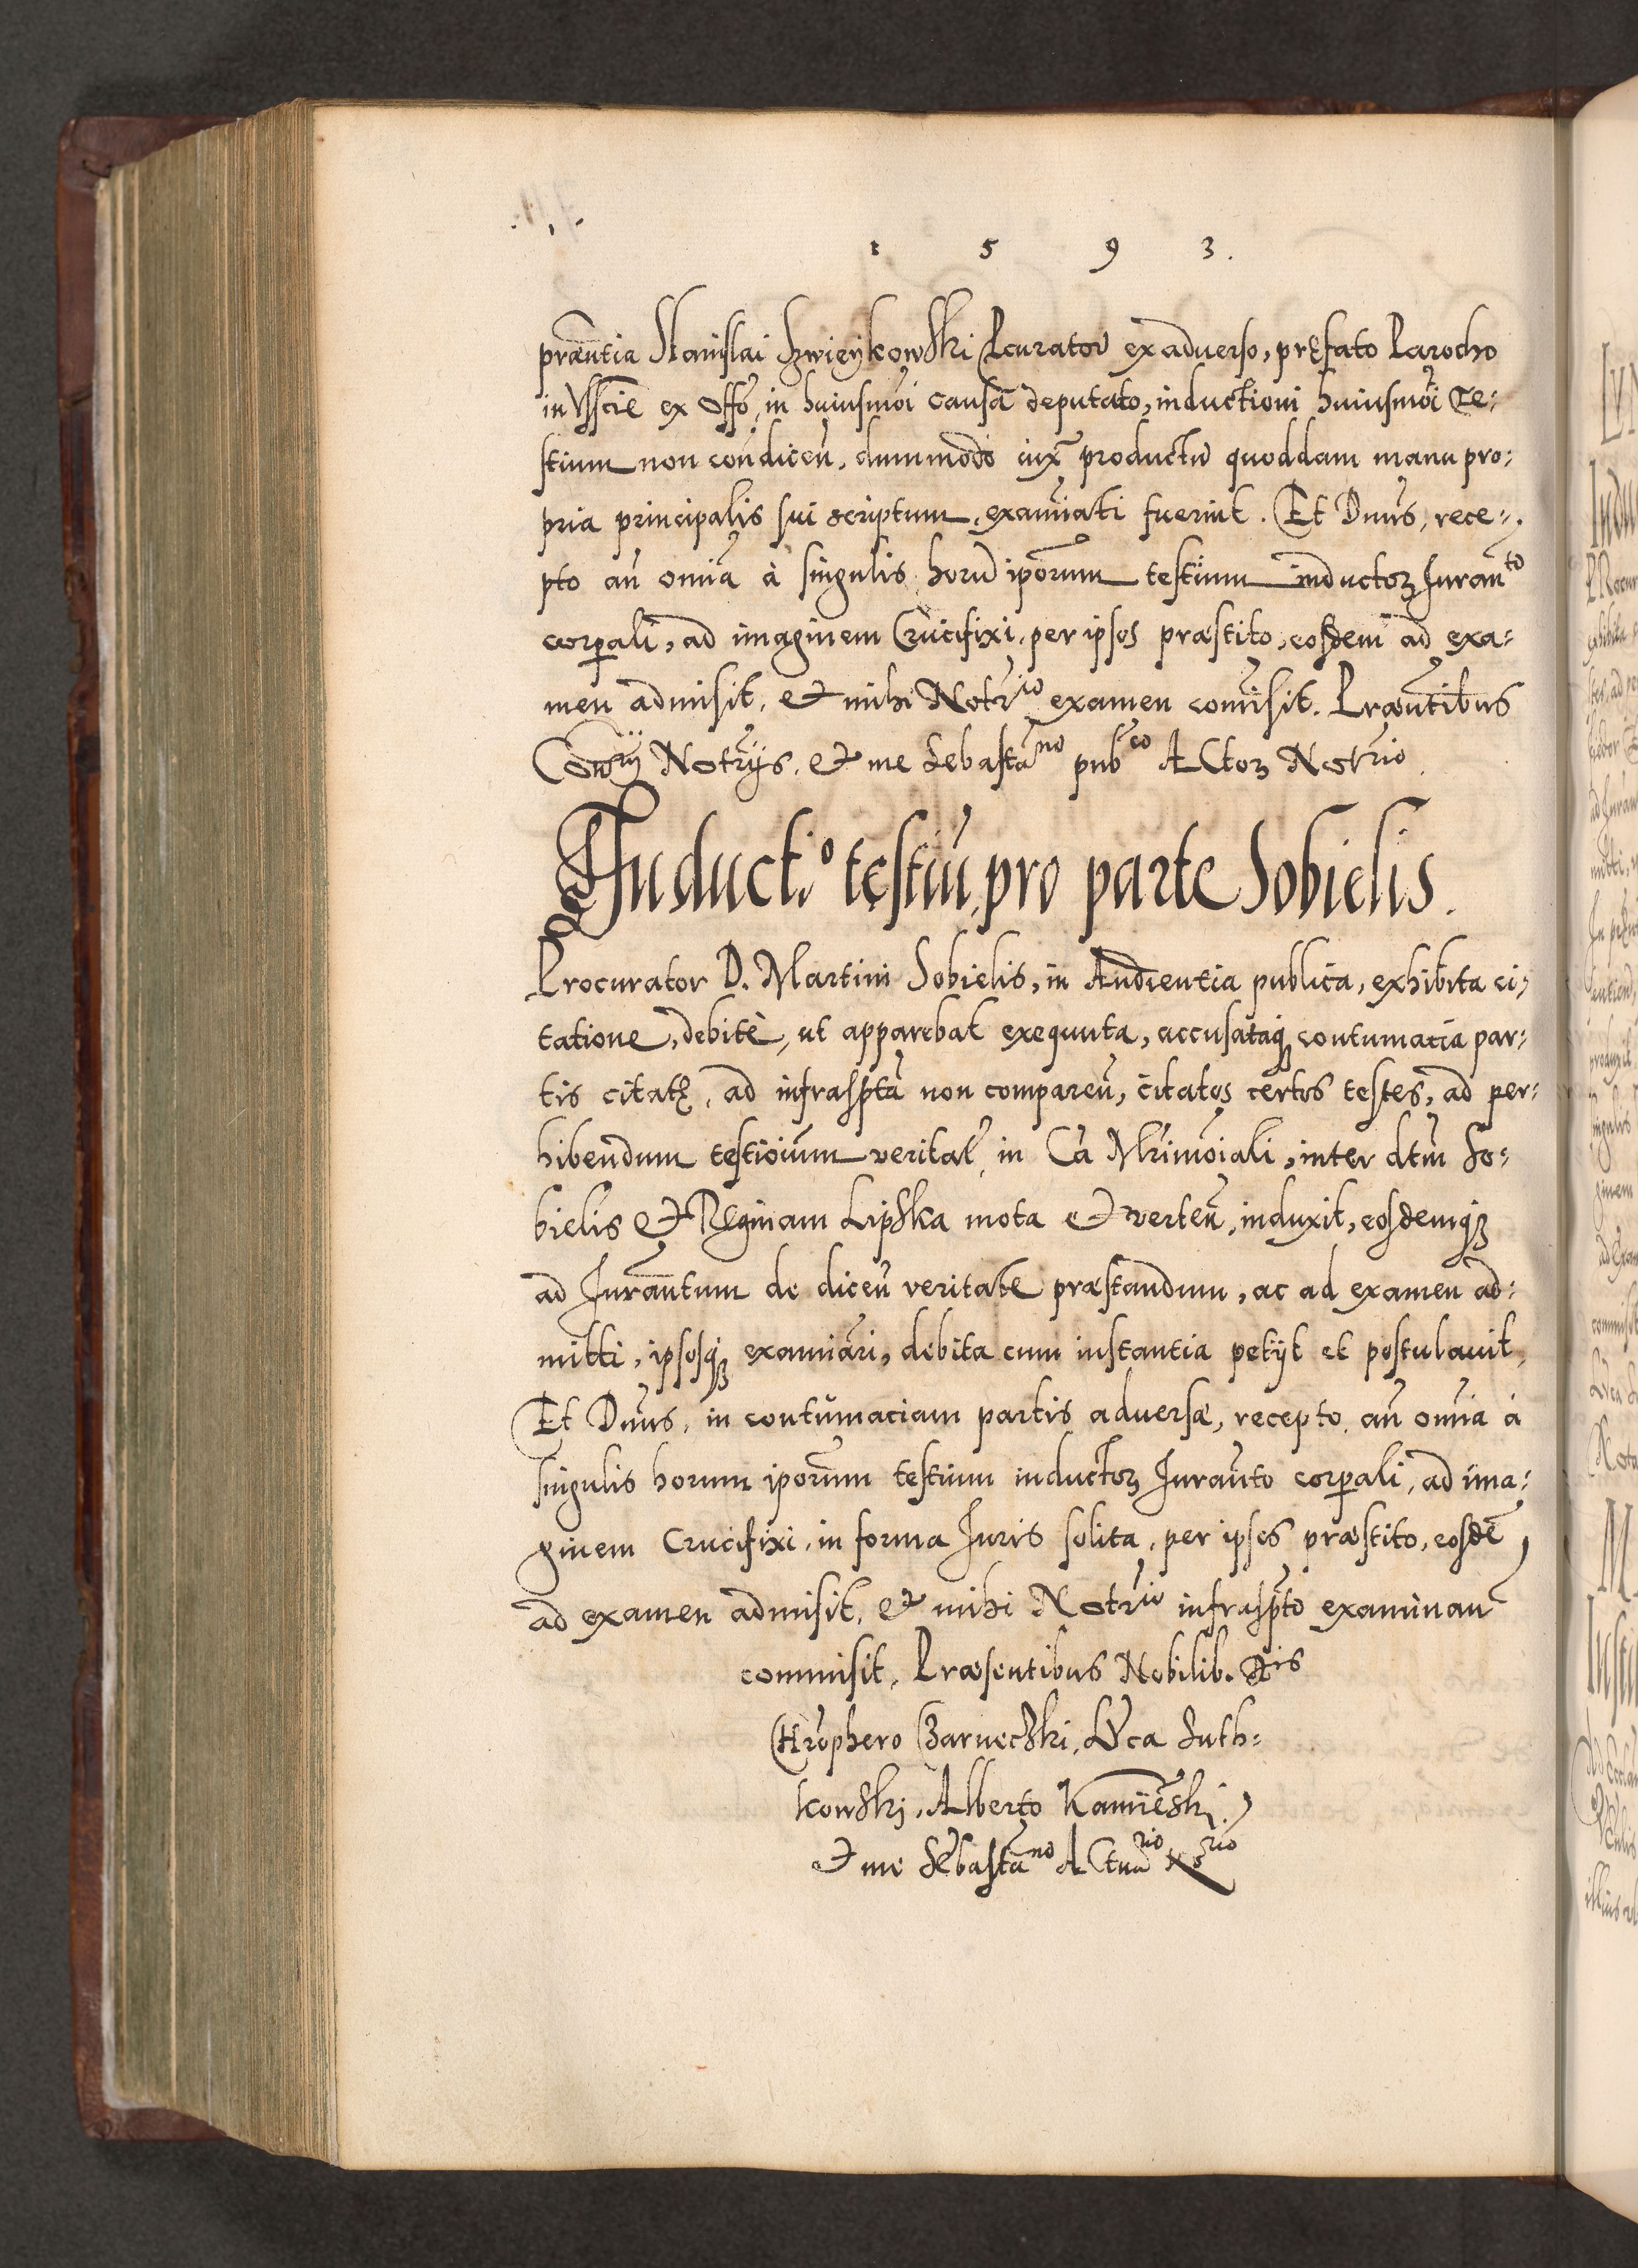 1 5 9 3.
præntia Stanislai Szwieykowski Pcurator ex adverso, prefato Parocho
in Usscie ex Offo, in huiusmoi causa deputato, inductioni huiusmoi te-
stium non condicen, dummodo iuxa productu quoddam manu pro-
pria principalis sui scriptum, examinati fuerint. Et Dnus, rece-
pto an omia à singulis horu iporum testium inductoꝝ Juranto
corpali, ad imaginem Crucifixi, per ipsos præstito, eosdem ad exa-
men admisit, et mihi Notrio examen comisit. Præntibus
Consrÿ Notrÿs, et me Sebastano pubco Actoꝝ Notrio.
Inductio testiu, pro parte Sobielis.
Procurator D. Martini Sobielis, in Audientia publica, exhibita ci-
tatione, debitè, ut apparebat exequuta, accusataqꝫ contumacia par-
tis citatę, ad infrasptа non comparen, citatos certos testes, ad per-
hibendum testioium veritat, in Ca Mrimoiali, inter dtm So-
bielis et Reginam Lipska mota et verten, induxit, eosdemqꝫ
ad Jurantum de dicen veritate præstandum, ac ad examen ad-
mitti, ipsosqꝫ examiari, debita cum instantia petÿt et postulauit,
Et Dnus, in contumaciam partis adversæ, recepto an omia à
singulis horum iporum testium inductoꝝ Juranto corpali, ad ima-
ginem Crucifixi, in forma Juris solita, per ipsos præstito, eosde
ad examen admisit, et mihi Notrio infraspto examinan
commisit, Præsentibus Nobilib. Dis
Chrophero Czarnecski, Luca Suth-
kowski, Alberto Kamieski,
Et me Sebastano Actuario Nrio